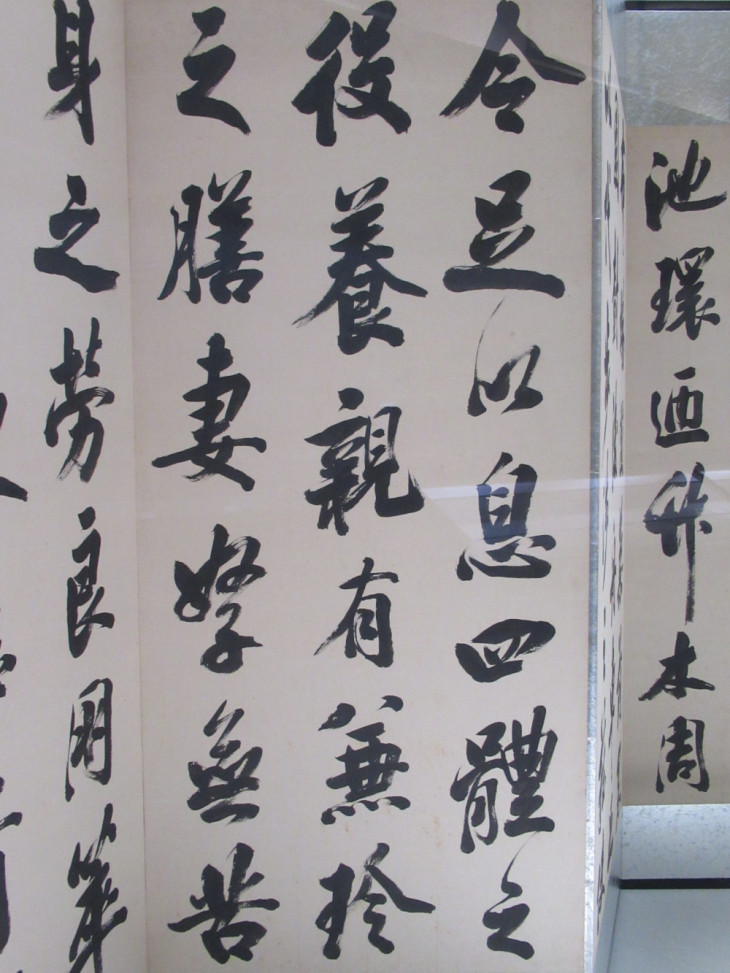 池環迊竹木周
令足以息四體之
役養親有兼珍
之膳妻孥無苦
身之勞良朋萃